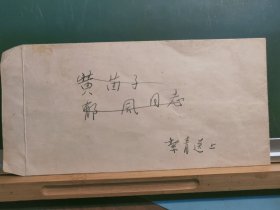 黄苗子
郁风同志
叶青送上